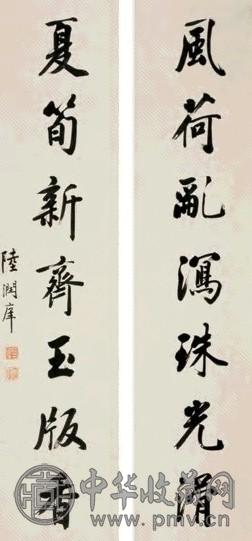 風荷亂瀉珠光滑
夏筍新齊玉版香
陸潤庠
中华收藏网
www.pmv.cn